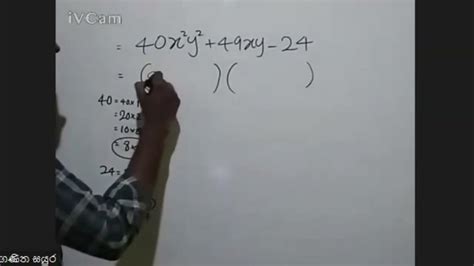 iVCam
= 40x²y² + 49xy - 24
= ( )( )
40 = 40×
= 20×
= 10×
= 8×
24 =
ගණිත සයුර